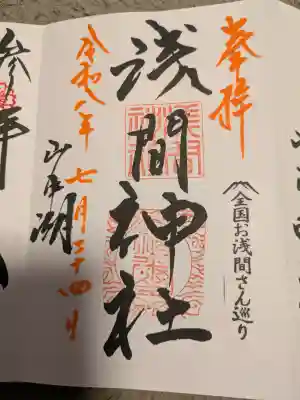 奉拝
全国お浅間さん巡り
浅間神社
山中湖
令和八年七月二十四日
参拝